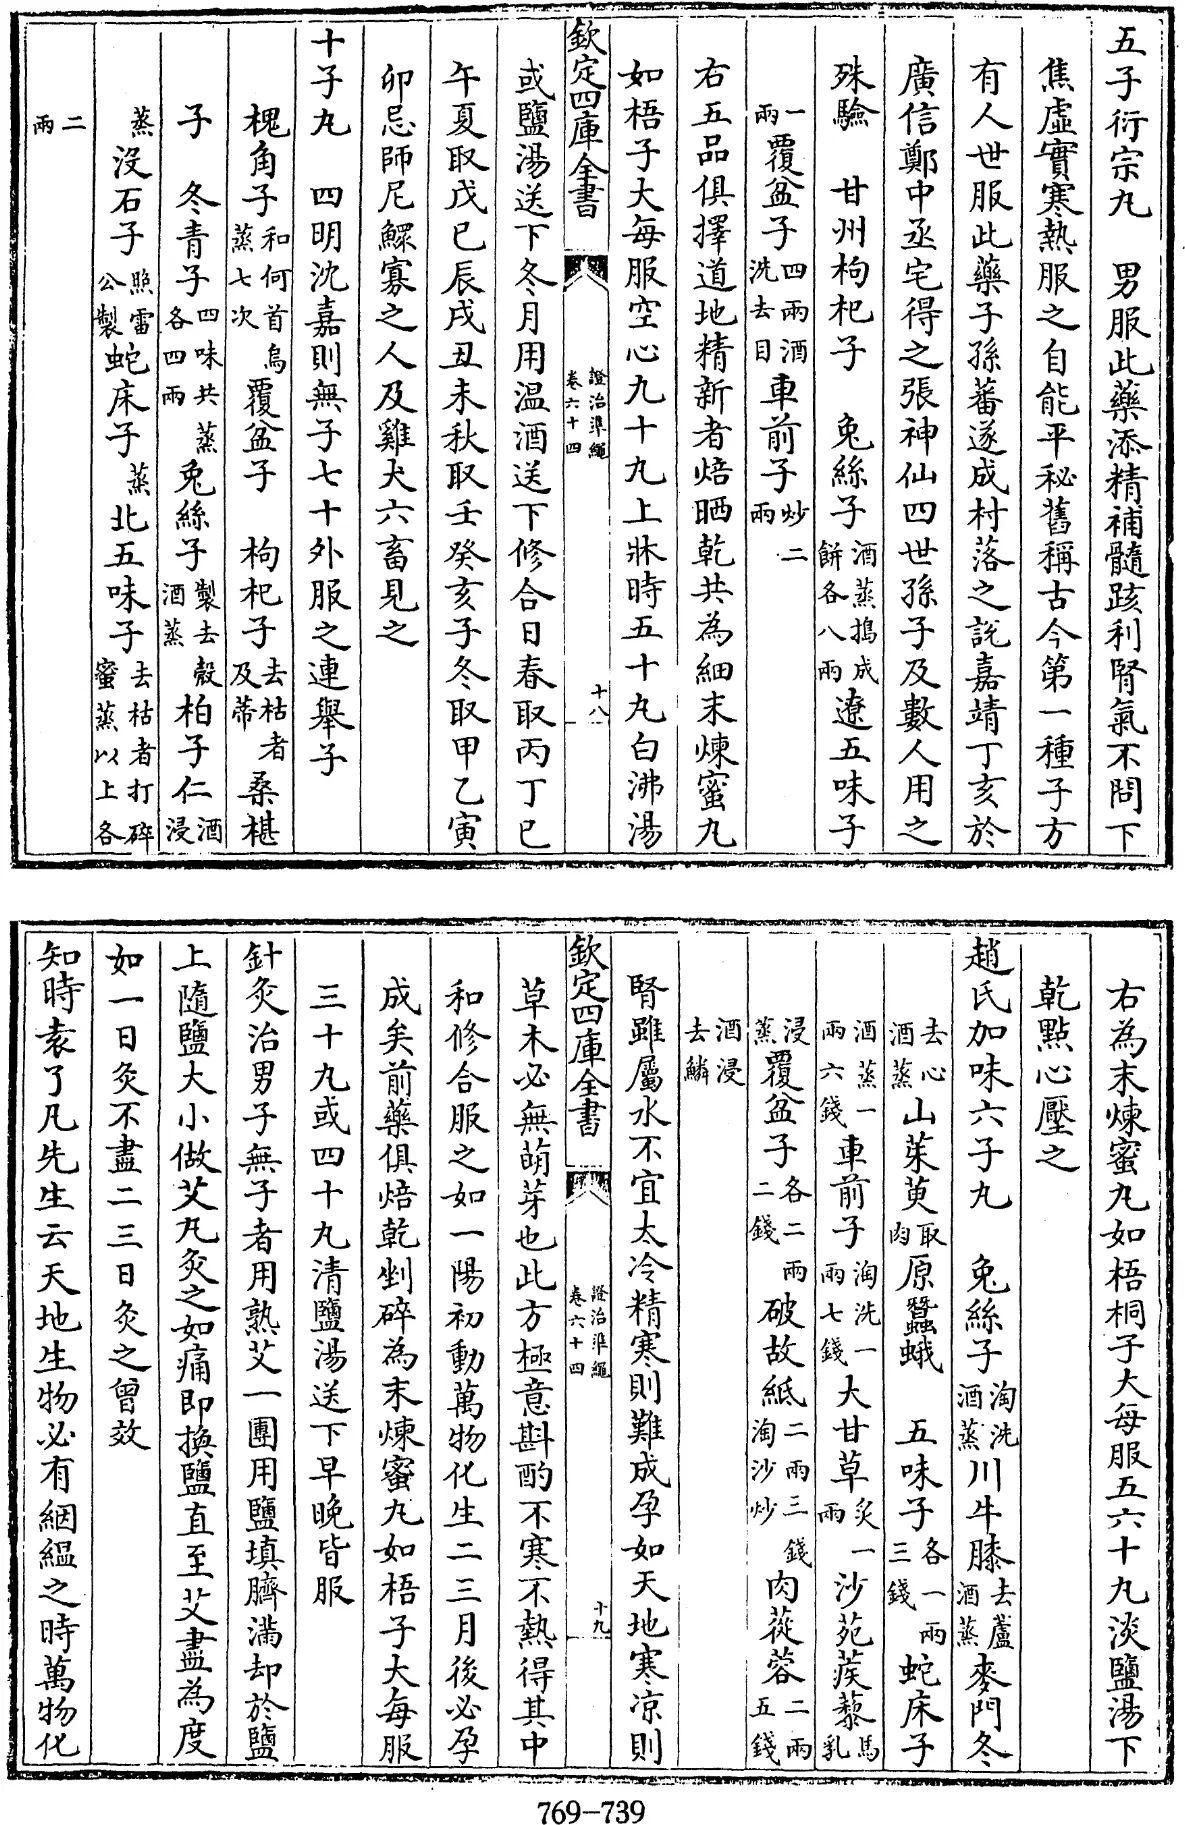 五子衍宗丸　男服此藥添精補髓䟦利腎氣不問下
焦虛實寒熱服之自能平秘舊稱古今第一種子方
有人世服此藥子孫蕃遂成村落之說嘉靖丁亥於
廣信鄭中丞宅得之張神仙四世孫予及數人用之
殊驗　甘州枸杞子　兔絲子酒蒸搗成餅各八兩遼五味子
一兩覆盆子四兩酒洗去目車前子炒二兩
右五品俱擇道地精新者焙晒乾共為細末煉蜜丸
如梧子大每服空心九十丸上牀時五十丸白沸湯
欽定四庫全書　證治準繩卷六十四　十八
或鹽湯送下冬月用温酒送下修合日春取丙丁巳
午夏取戊已辰戌丑未秋取壬癸亥子冬取甲乙寅
卯忌師尼鰥寡之人及雞犬六畜見之
十子丸　四明沈嘉則無子七十外服之連舉子
槐角子和何首烏蒸七次覆盆子　枸杞子去枯者及蒂桑椹
子　冬青子四味共蒸各四兩兔絲子製去殼酒蒸柏子仁酒浸
蒸沒石子照雷公製蛇床子蒸北五味子去枯者打碎蜜蒸以上各
二兩
右為末煉蜜丸如梧桐子大每服五六十丸淡鹽湯下
乾點心壓之
趙氏加味六子丸　兔絲子淘洗酒蒸川牛膝去蘆酒蒸麥門冬
去心酒蒸山茱萸取肉原蠶蛾　五味子各一兩三錢蛇床子
酒蒸一兩六錢車前子淘洗一兩七錢大甘草炙一兩沙苑蒺藜馬乳
浸蒸覆盆子各二兩二錢破故紙二兩三錢淘沙炒肉蓯蓉二兩五錢
酒浸去鱗
腎雖屬水不宜太冷精寒則難成孕如天地寒凉則
欽定四庫全書　證治準繩卷六十四　十九
草木必無萌芽也此方極意斟酌不寒不熱得其中
和修合服之如一陽初動萬物化生二三月後必孕
成矣前藥俱焙乾剉碎為末煉蜜丸如梧子大每服
三十丸或四十丸清鹽湯送下早晚皆服
針灸治男子無子者用熟艾一團用鹽填臍滿却於鹽
上隨鹽大小做艾丸灸之如痛即換鹽直至艾盡為度
如一日灸不盡二三日灸之曾效
知時袁了凡先生云天地生物必有絪縕之時萬物化
769-739